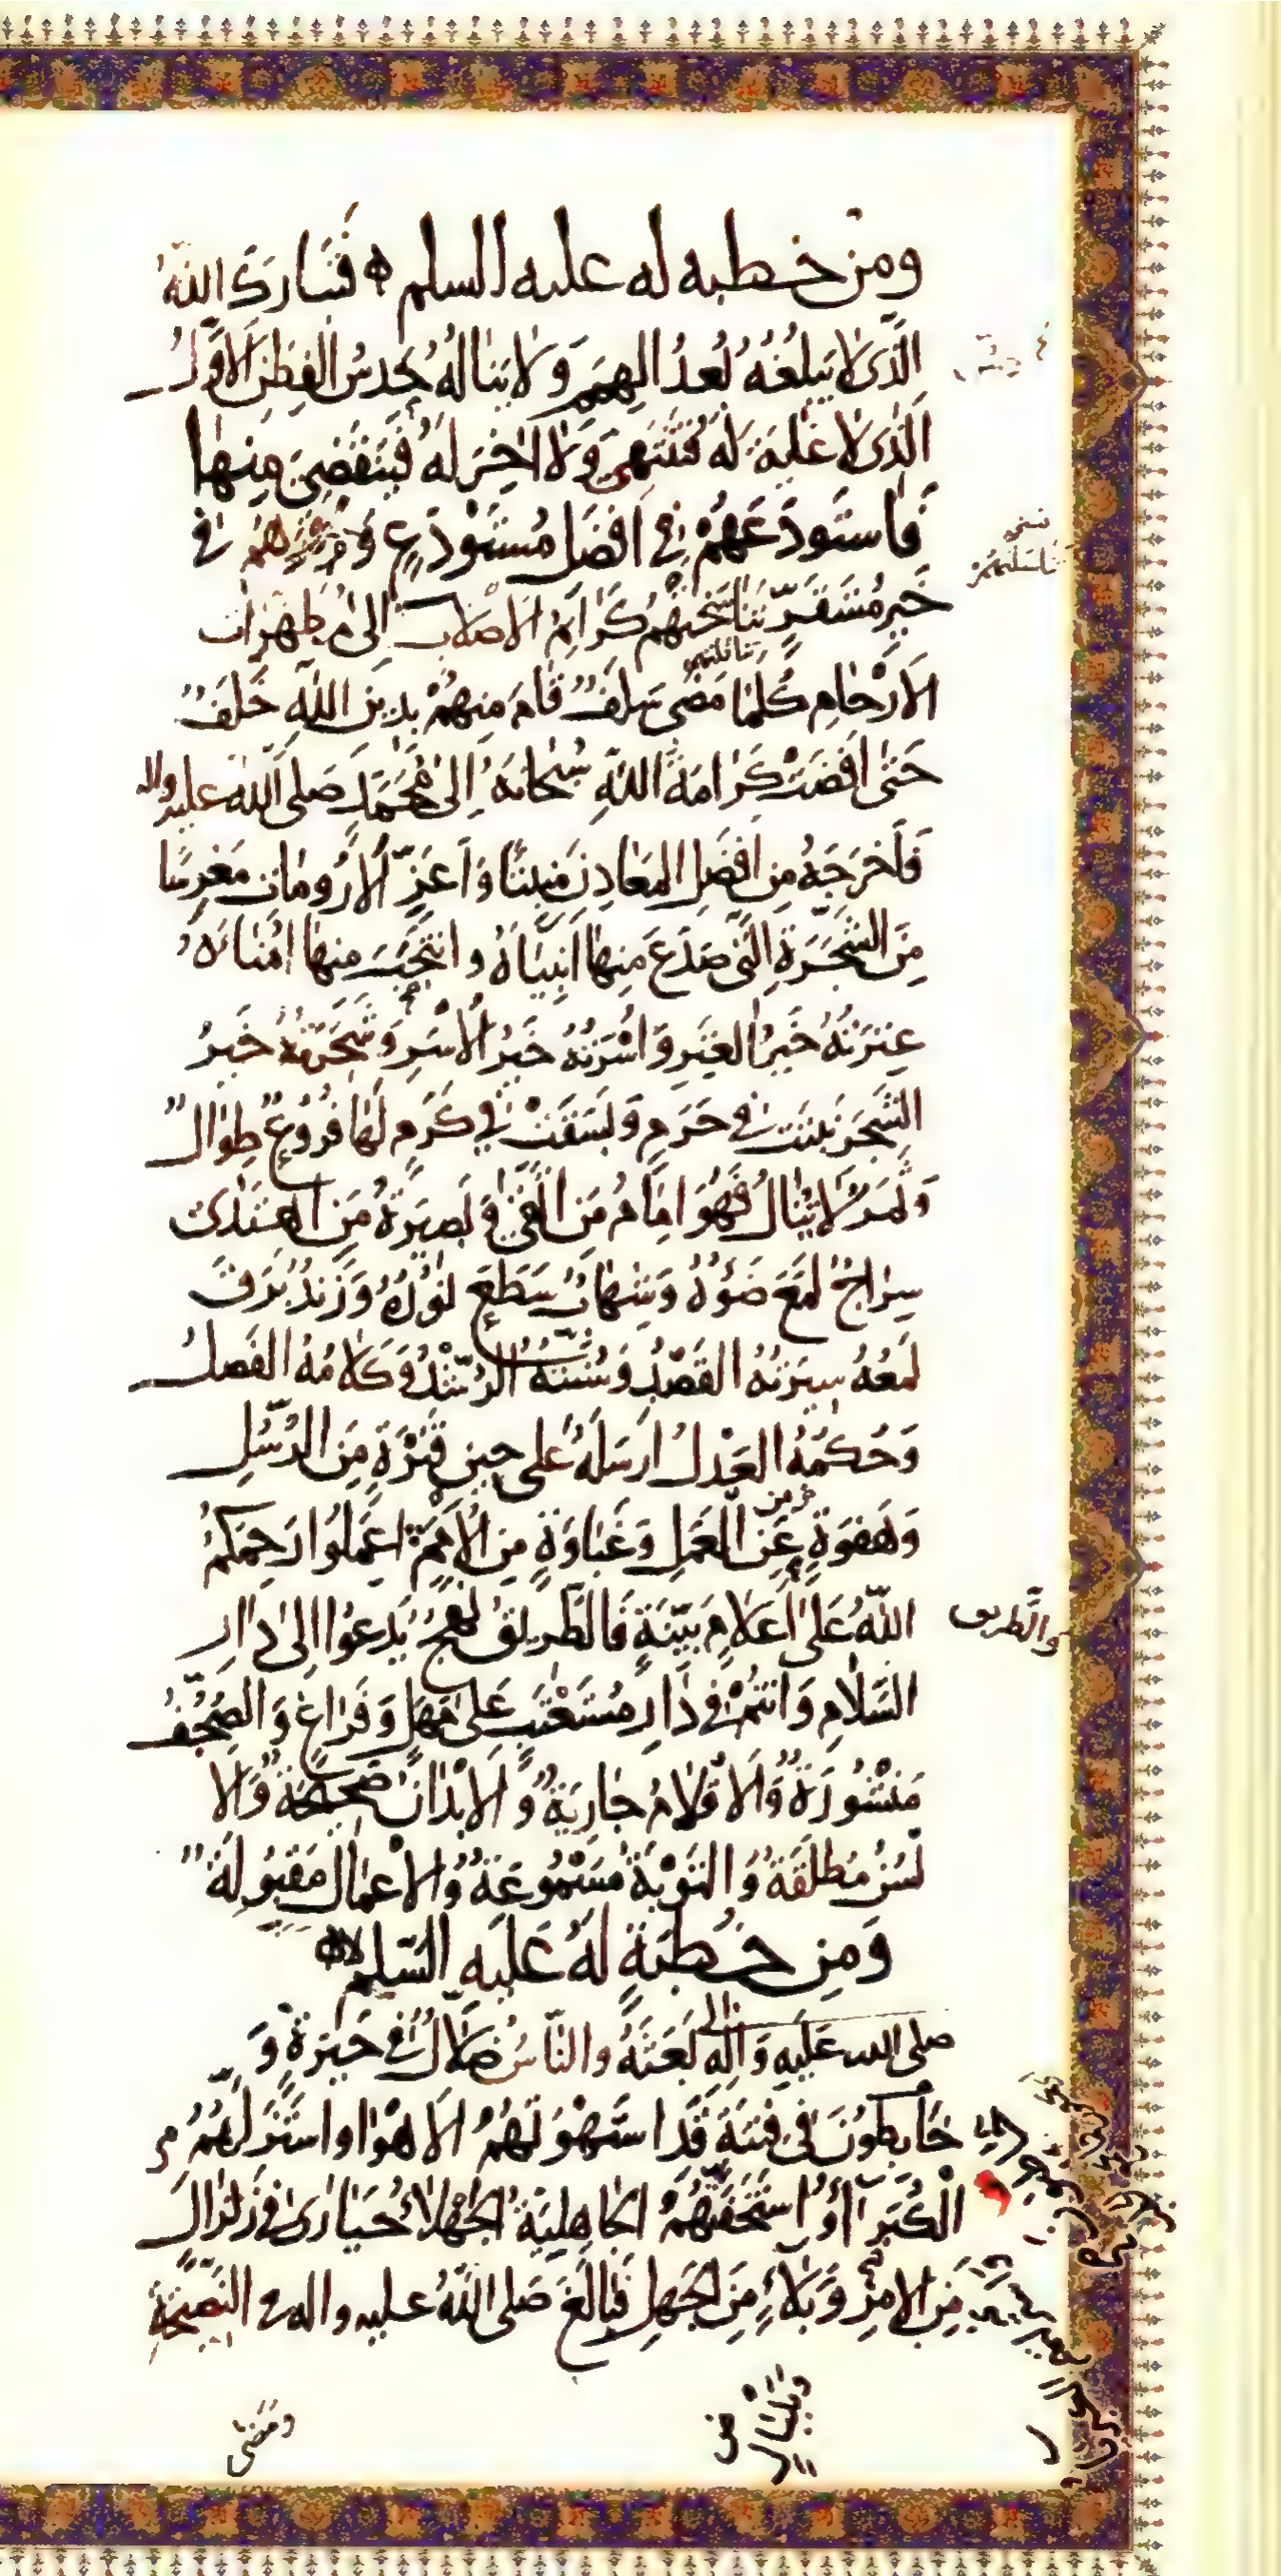 ومن خطبه له عليه السلم فَتَبارَكَ اللهُ
الَّذى لا يَبلُغُهُ بُعدُ الهِمَمِ وَلا يَنالُهُ حَدسُ الفِطَنِ الاوَّلُ
الَّذى لا غايَةَ لَهُ فَيَنتَهِىَ وَلا اخِرَ لَهُ فَيَنقَضِىَ مِنها
فَاستَودَعَهُمْ فى افضَلِ مُستَوْدَعٍ وَ اقرهم فى
خَيرِ مُستَقَرٍّ تَناسَخَتهُم كَرائِمُ الاصلاب الى مُطَهَّرات
تناقلتهم
الارْحامِ كُلَّما مَضى سَلَفٌ قامَ مِنهُمْ بِدينِ اللهِ خَلَفٌ
حَتى افضَتْ كَرامَةُ اللهِ سُبحانَهُ اِلى مُحَمَّدٍ صَلى الله عليه واله
فَاَخرَجَهُ مِن افضَلِ المَعادِنِ مَنبِتًا وَاَعَزِّ الارُوماتِ مَغرِسًا
مِنَ الشَّجَرَةِ الَّتى صَدَعَ مِنها انبِياءَهُ وانتَجَبَ مِنها امَناءَهُ
عِترَتُهُ خَيرُ العِتَرِ وَاُسْرَتُهُ خَيرُ الاُسَرِ وَشَجَرَتُهُ خَيرُ
الشَّجَرِ نَبَتَت فى حَرَمٍ وَبَسَقَتْ فى كَرَمٍ لَها فُرُوعٌ طِوالٌ
وَثَمَرٌ لا يُنالُ فَهُوَ امامُ مَنِ اتَّقى وَبَصيرَةُ مَنِ اهتَدى
سِراجٌ لَمَعَ ضَوئُهُ وَشِهابٌ سَطَعَ نُورُهُ وَزَندٌ بَرَقَ
لَمعُهُ سيرَتُهُ القَصْدُ وَسُنَّتُهُ الرُّشْدُ وَكَلامُهُ الفَصلُ
وَحُكمُهُ العَدْلُ ارسَلَهُ عَلى حينِ فَترَةٍ مِنَ الرُّسُلِ
وَهَفوَةٍ عَنِ العَمَلِ وَغَباوَةٍ مِنَ الاُمَمِ اعمَلُوا رَحِمَكُمُ
اللهُ عَلى اَعلامٍ بَيِّنَةٍ فَالطَّريقُ نَهجٌ يَدعُوا اِلى دارِ
والطريق
السَّلامِ وَانتُمْ فى دارِ مُستَعْتَبٍ عَلى مَهَلٍ وَفَراغٍ وَالصُّحُفُ
مَنْشُورَةٌ وَالاقلامُ جارِيَةٌ وَالابْدانُ صَحيحَةٌ وَالا
لسُنُ مُطلَقَةٌ وَالتَوْبَةُ مَسْمُوعَةٌ وَالاعْمالُ مَقبُولَةٌ
وَمِن خُطبَةٍ لَهُ عَلَيهِ السَّلم
صلى الله عَلَيهِ وَالِهِ بَعَثَهُ والنّاسُ ضُلّالٌ فى حَيرَةٍ وَ
خابِطُونَ فى فِتنَةٍ قَدِ استَهْوَتهُمُ الاهْوا واستَزَلَّهُمُ
الْكُبَرآءُ وَ استَخَفَّتهُمُ الجاهِليَّةُ الجَهلاءُ حَيارى فى زَلزالٍ
مِنَ الامْرِ وَبَلاءٍ مِنَ الجَهلِ فَبالَغَ صَلى اللهُ عليه واله فى النَّصيحَةِ
وَمَضى